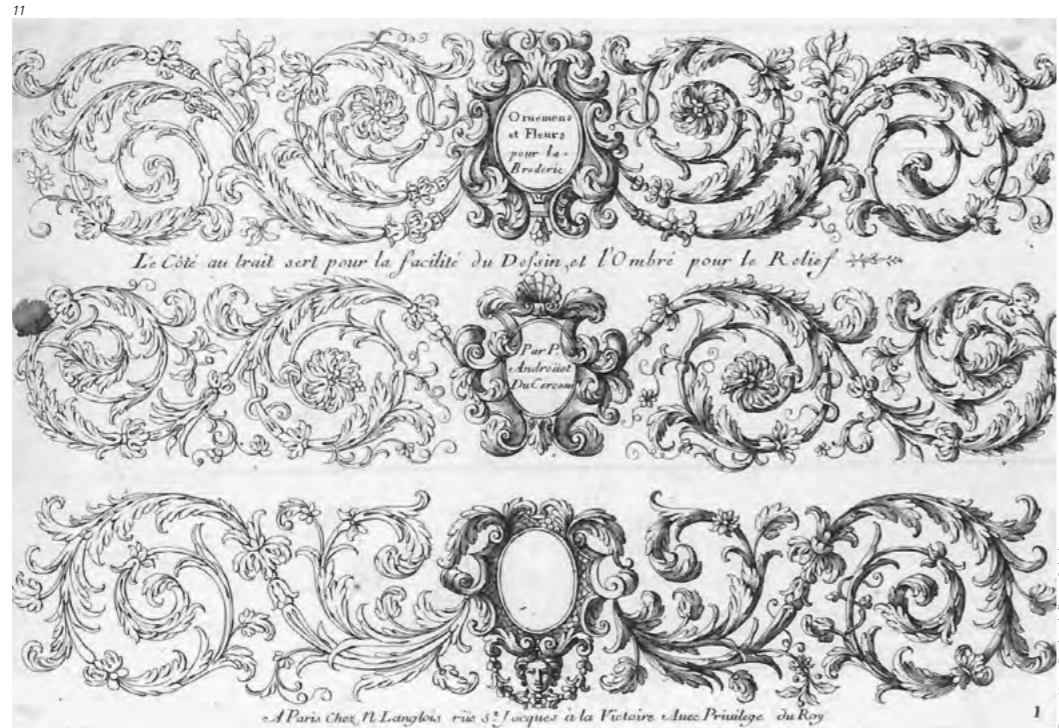 11
Ornemens
et Fleurs
pour la
Broderie
Le Côté au trait sert pour la facilité du Dessin, et l'Ombré pour le Relief
Par P.
Androüet
Du Cerceau
A Paris Chez N. Langlois rüe St. Jacques à la Victoire Avec Privilege du Roy
1